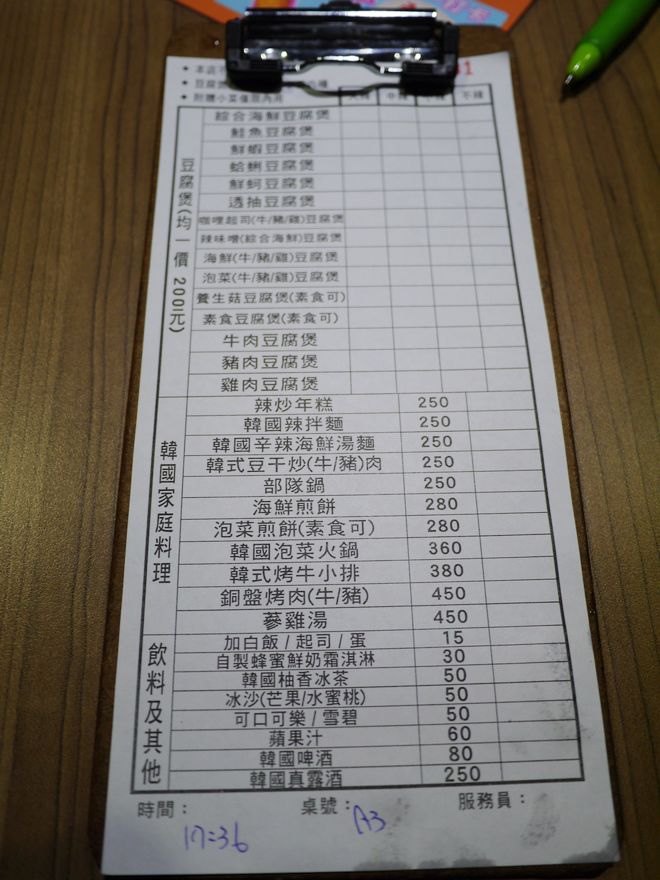 • 本店
• 豆腐煲
• 附贈小菜僅限內用
1
大辣 中辣 小辣 不辣
豆腐煲(均一價 200元)
綜合海鮮豆腐煲
鮭魚豆腐煲
鮮蝦豆腐煲
蛤蜊豆腐煲
鮮蚵豆腐煲
透抽豆腐煲
咖哩起司(牛/豬/雞)豆腐煲
辣味噌(綜合海鮮)豆腐煲
海鮮(牛/豬/雞)豆腐煲
泡菜(牛/豬/雞)豆腐煲
養生菇豆腐煲(素食可)
素食豆腐煲(素食可)
牛肉豆腐煲
豬肉豆腐煲
雞肉豆腐煲
韓國家庭料理
辣炒年糕 250
韓國辣拌麵 250
韓國辛辣海鮮湯麵 250
韓式豆干炒(牛/豬)肉 250
部隊鍋 250
海鮮煎餅 280
泡菜煎餅(素食可) 280
韓國泡菜火鍋 360
韓式烤牛小排 380
銅盤烤肉(牛/豬) 450
蔘雞湯 450
飲料及其他
加白飯 / 起司 / 蛋 15
自製蜂蜜鮮奶霜淇淋 30
韓國柚香冰茶 50
冰沙(芒果/水蜜桃) 50
可口可樂 / 雪碧 50
蘋果汁 60
韓國啤酒 80
韓國真露酒 250
時間： 桌號： 服務員：
17:36 A3